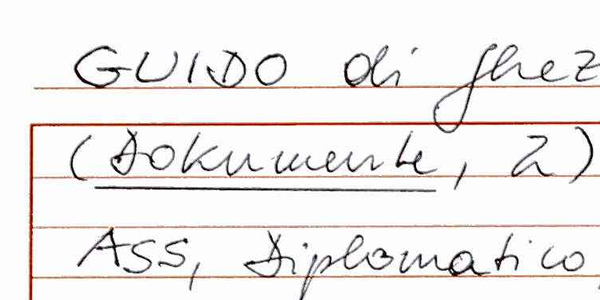 GUIDO di Ghez
(Dokumente, 2)
ASS, Diplomatico,